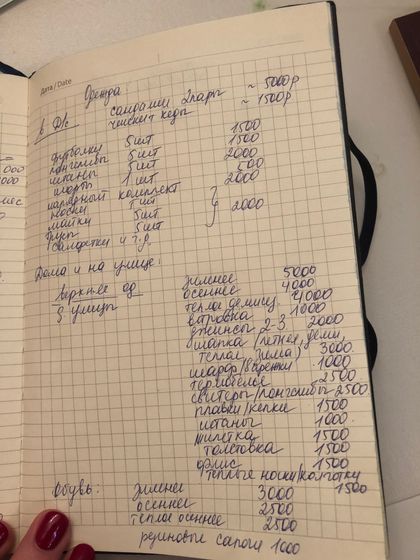 Дата / Date
Одежда
в д/с сандалии 2пары ~ 5000р
чешки + кеды ~ 1500р
футболки 5шт 1500
лонгсливы 5шт 1500
штаны 5шт 2000
шорты 1шт 500
нарядный комплект 2000
носки 5шт
майки 5шт } 2000
трусы 5шт
салфетки и т.д.
Дома и на улице:
Верхнее од зимнее 5000
д улицы осеннее 4000
теплое демисез 4000
ветровка 1000
джинсы 2-3 2000
шапка (летнея, деми,
теплая зима) 3000
шарф/варежки 1000
термобелье 2500
свитеры/лонгсливы 2500
плавки/кепки 1500
штаны 1000
жилетка 1500
толстовка 1500
флис 1500
теплые носки/колготки 1500
Обувь: зимнее 3000
осеннее 2500
теплое осеннее 2500
резиновые сапоги 1000